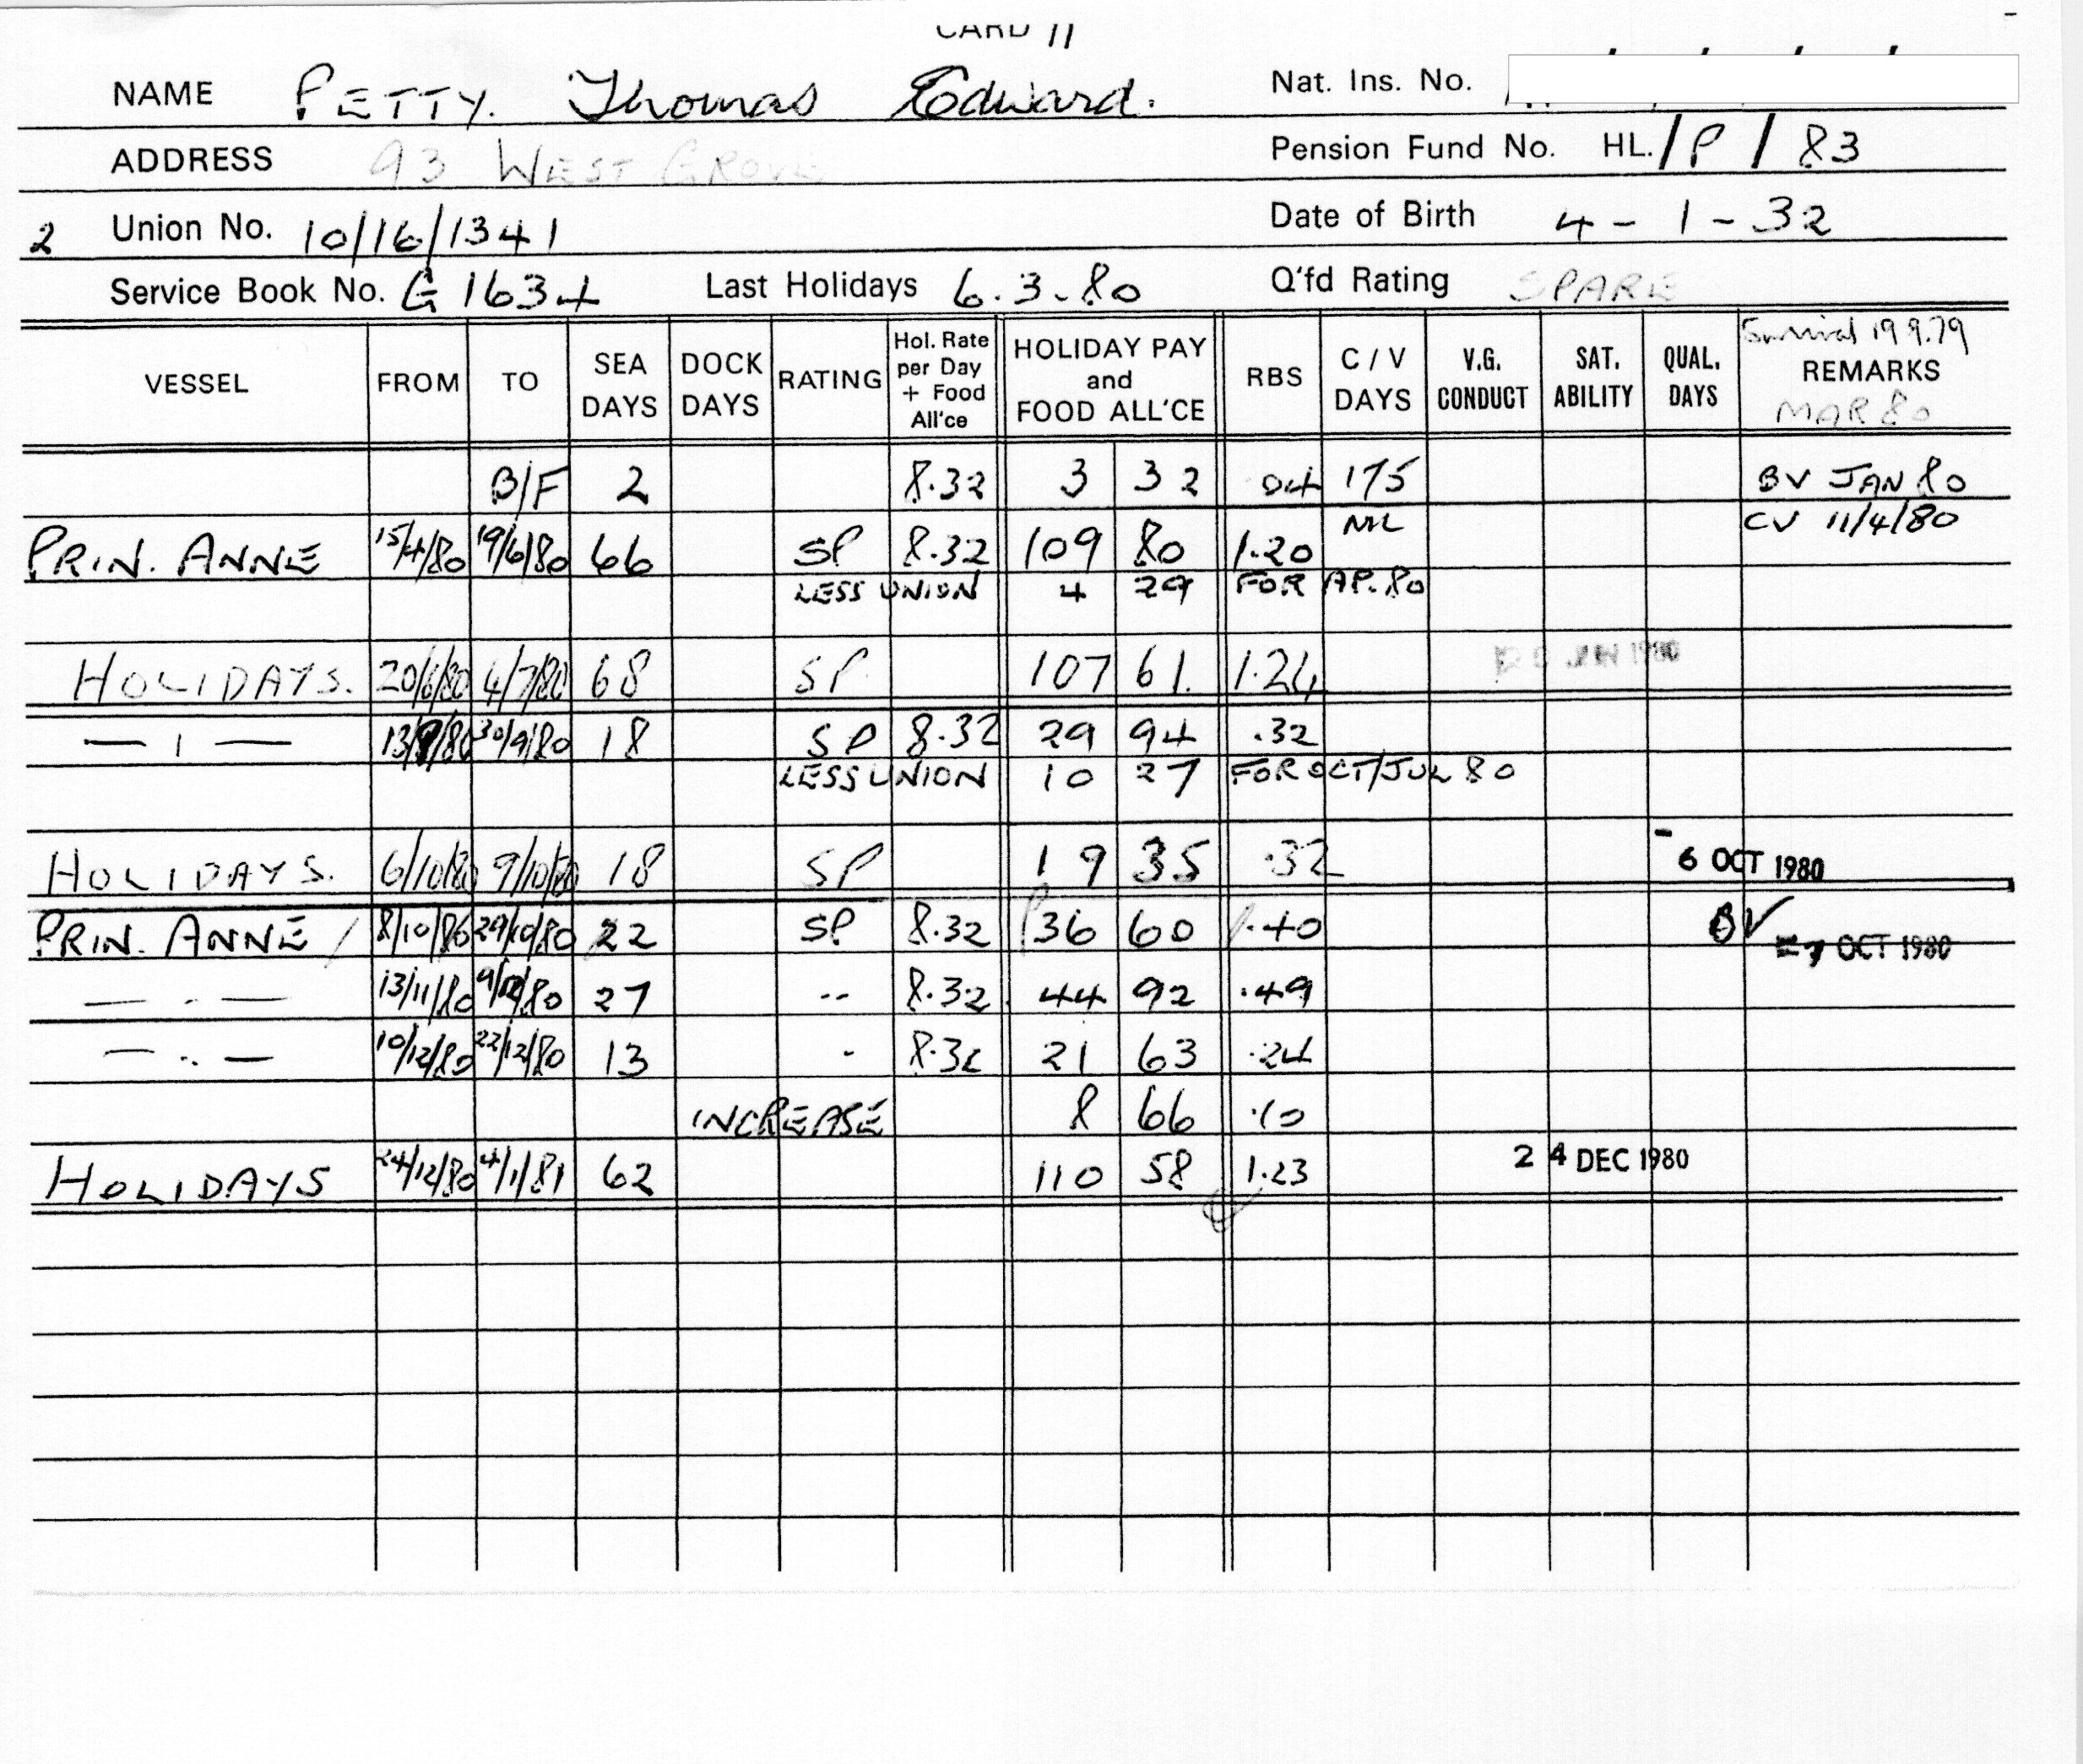 CARD 11
NAME PETTY. Thomas Edward. Nat. Ins. No.
ADDRESS 93 WEST GROVE Pension Fund No. HL./P/83
2 Union No. 10/16/1341 Date of Birth 4-1-32
Service Book No. G 1634 Last Holidays 6.3.80 Q'fd Rating SPARE
VESSEL FROM TO SEA DAYS DOCK DAYS RATING Hol. Rate per Day + Food All'ce HOLIDAY PAY and FOOD ALL'CE RBS C/V DAYS V.G. CONDUCT SAT. ABILITY QUAL. DAYS Survival 19 9.79 REMARKS MAR 80
B/F 2 8.32 3 32 04 175 BV JAN 80
NIL CV 11/4/80
PRIN. ANNE 15/4/80 19/6/80 66 SP 8.32 109 80 1.20
LESS UNION 4 29 FOR AP. 80
HOLIDAYS. 20/6/80 4/7/80 68 SP 107 61. 1.24 JUN 1980
— 1 — 13/9/80 30/9/80 18 SP 8.32 29 94 .32
LESS UNION 10 27 FOR OCT/JUL 80
HOLIDAYS. 6/10/80 9/10/80 18 SP 19 35 .32 - 6 OCT 1980
PRIN. ANNE / 8/10/80 29/10/80 22 SP 8.32 36 60 .40 BV
-7 OCT 1980
— . — 13/11/80 9/12/80 27 -- 8.32 44 92 .49
— .. — 10/12/80 22/12/80 13 - 8.32 21 63 .24
INCREASE 8 66 .10
HOLIDAYS 24/12/80 4/1/81 62 110 58 1.23 24 DEC 1980